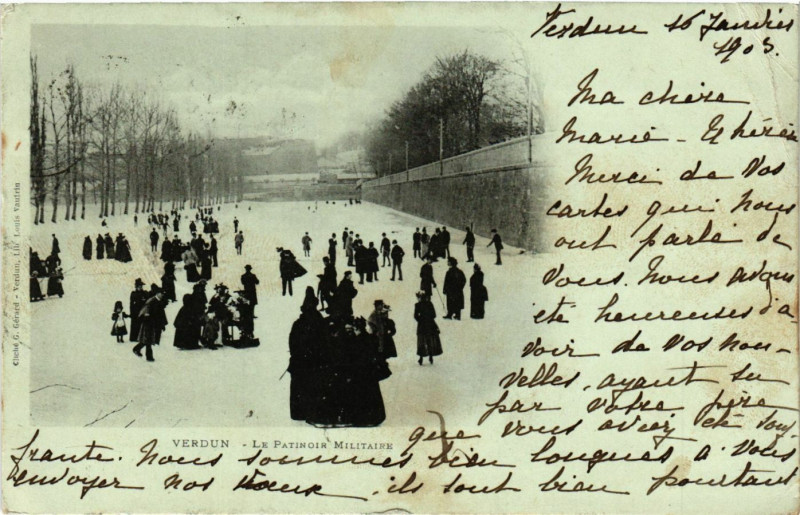 Verdun 16 Janvier
1903.
Ma chère
Marie - Thérèse
Merci de vos
cartes qui nous
ont parlé de
vous. Nous avons
été heureuses d'a-
voir de vos nou-
velles, ayant su
par votre père
que vous aviez été souf-
frante. Nous sommes bien longues à vous
envoyer nos vœux, ils sont bien pourtant
VERDUN - LE PATINOIR MILITAIRE
Cliché G. Gérard - Verdun, Lib. Louis Vautrin